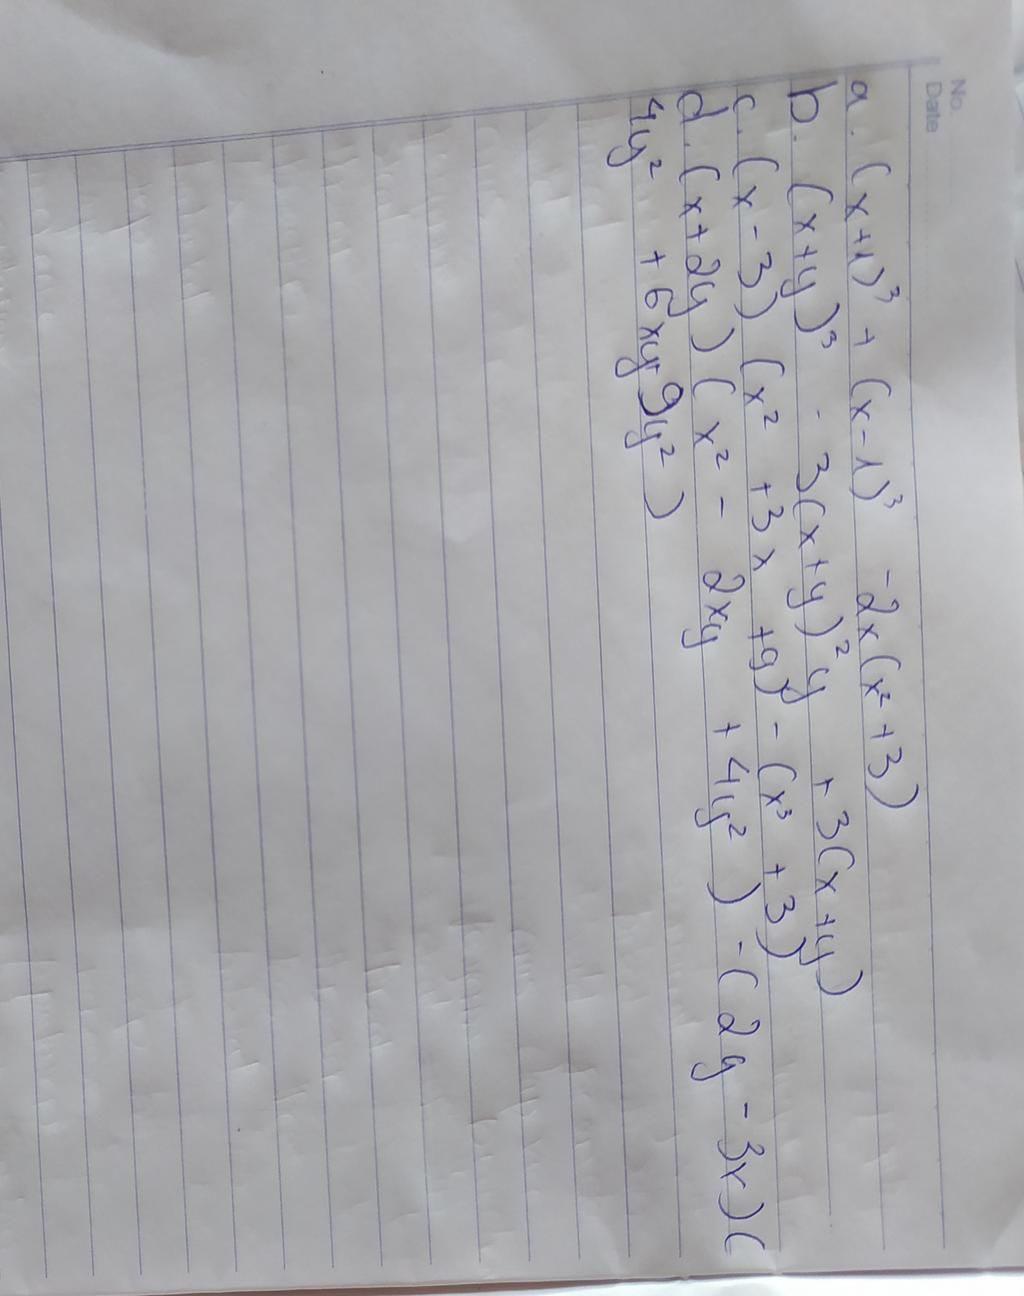 No.
Date
a. (x+1)³ + (x-1)³ -2x(x²+3)
b. (x+y)³ - 3(x+y)²y + 3(x+y)
c. (x-3) (x² +3x +9) - (x³ +3)
d. (x+2y) ( x² - 2xy + 4y² ) - ( 2y - 3x) (
4y² + 6xy 9y² )